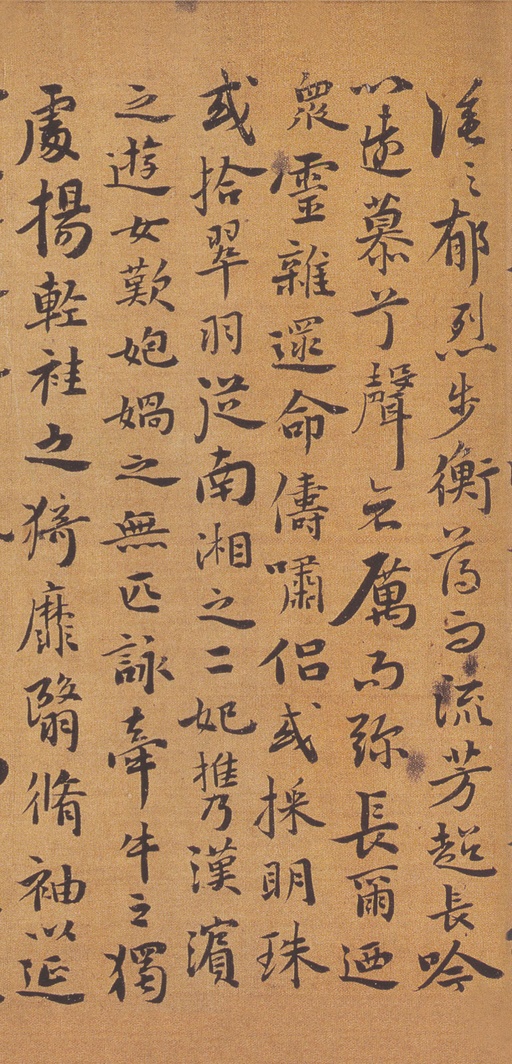 塗之郁烈步衡薄而流芳超長吟
以遠慕兮聲哀厲而弥長爾迺
衆靈雜遝命儔嘯侶或採明珠
或拾翠羽從南湘之二妃攜漢濱
之遊女歎㚿媧之無匹詠牽牛之獨
處揚輕袿之猗靡翳脩袖以延